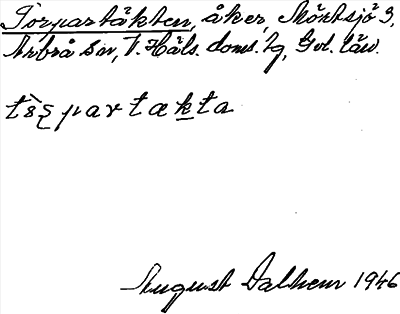 Torpartäkten, åker, Mörtsjö 3,
Arbrå sn, V. Häls. doms. tg, Gvl. län.
tòrpartækta
August Dalheim 1946